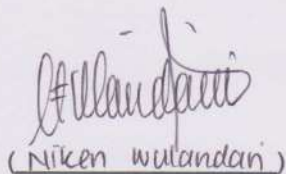 ( Niken wulandari )